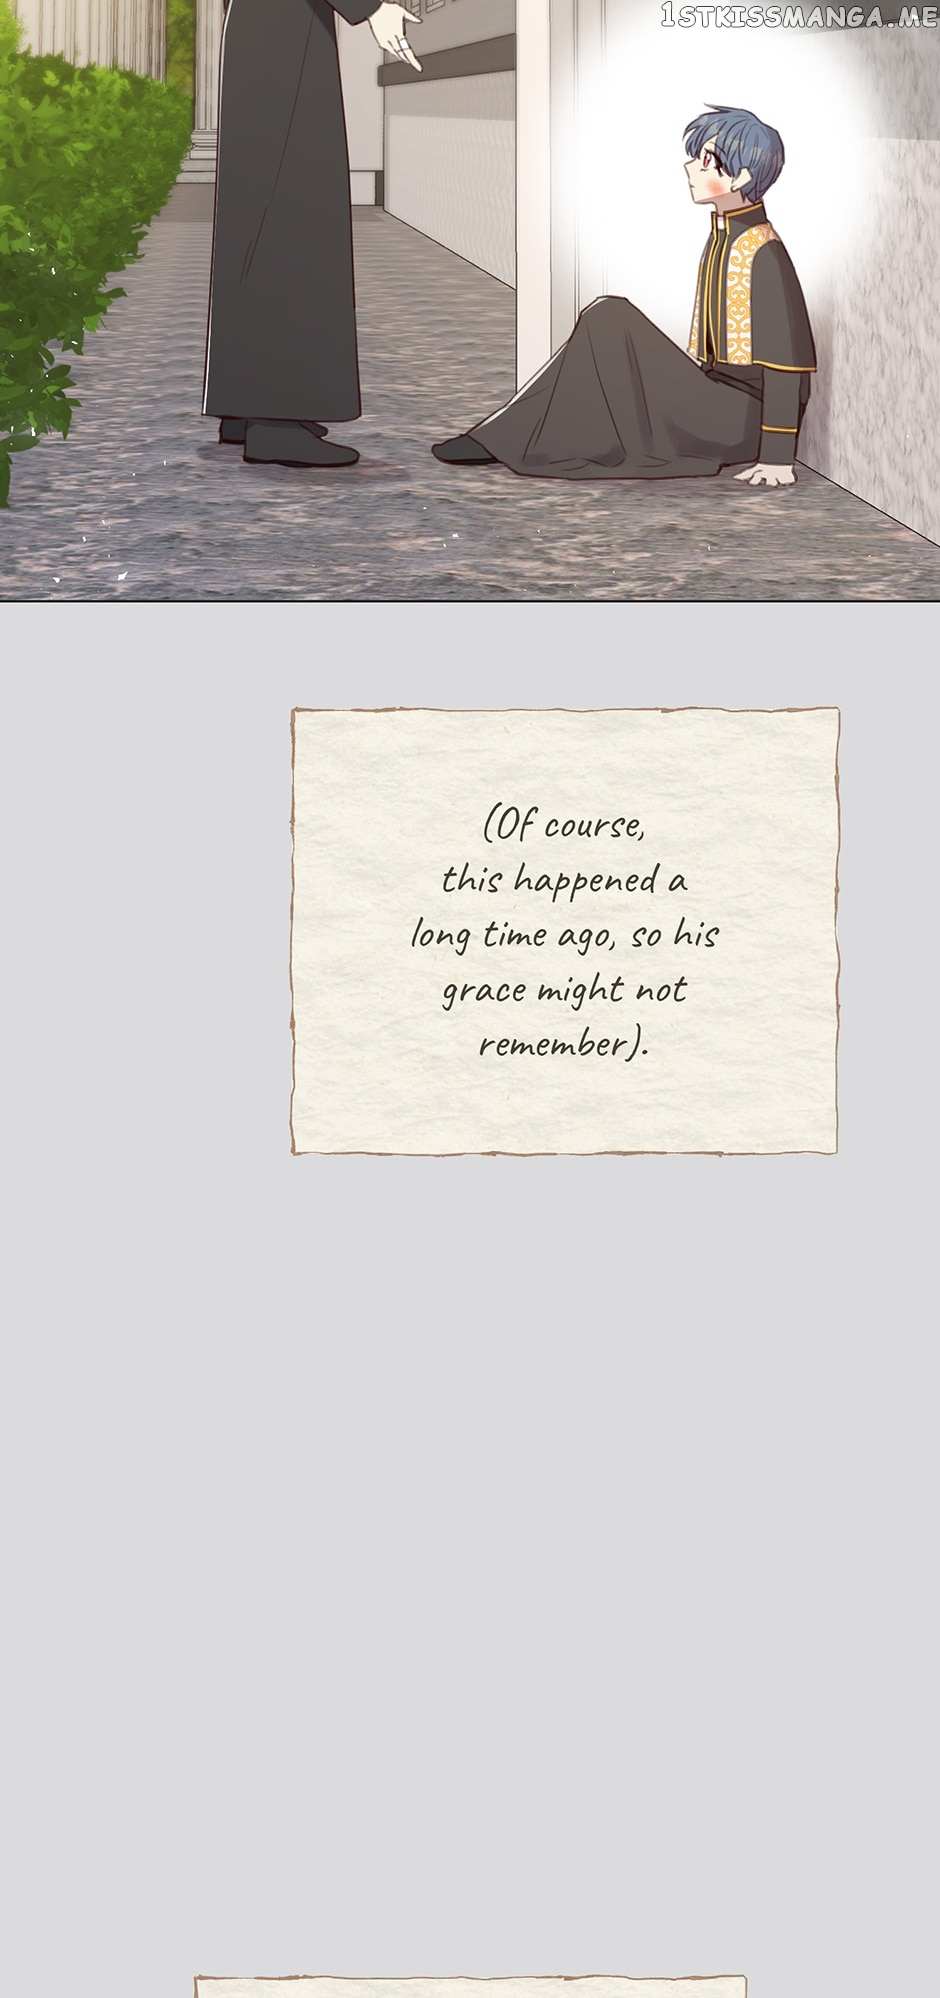 1STKISSMANGA.ME
(Of course,
this happened a
long time ago, so his
grace might not
remember).